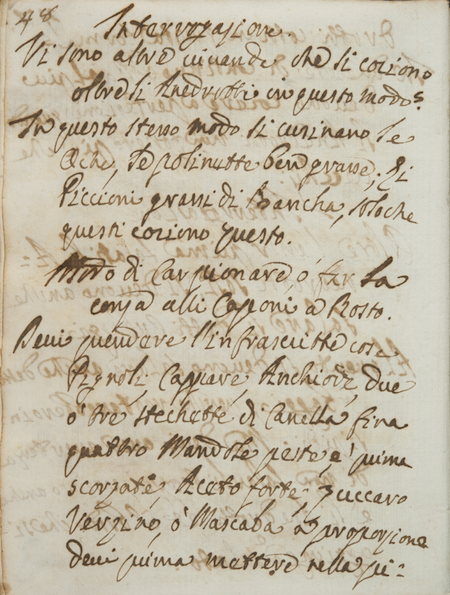 48
Interrogazione.
Vi sono altre vivande che si cociono
oltre li Anedrotti in questo modo?
In questo stesso modo si cusinano le
Oche, le polinutte ben grasse, gli
Piccioni grassi di Bancha, solo che
questi cociono presto.
Modo di Carpionare, o' far la
conza alli Caponi a Rosto.
Devi prendere l'infrascritte cose
Pignoli, Cappare, Anchiode, due
o' tre stechette di Canella fina
quattro Mandole peste, e' prima
scorzate, Aceto forte, zuccaro
Verzino, o' Mascaba a' proporzione
devi prima mettere nella pi-